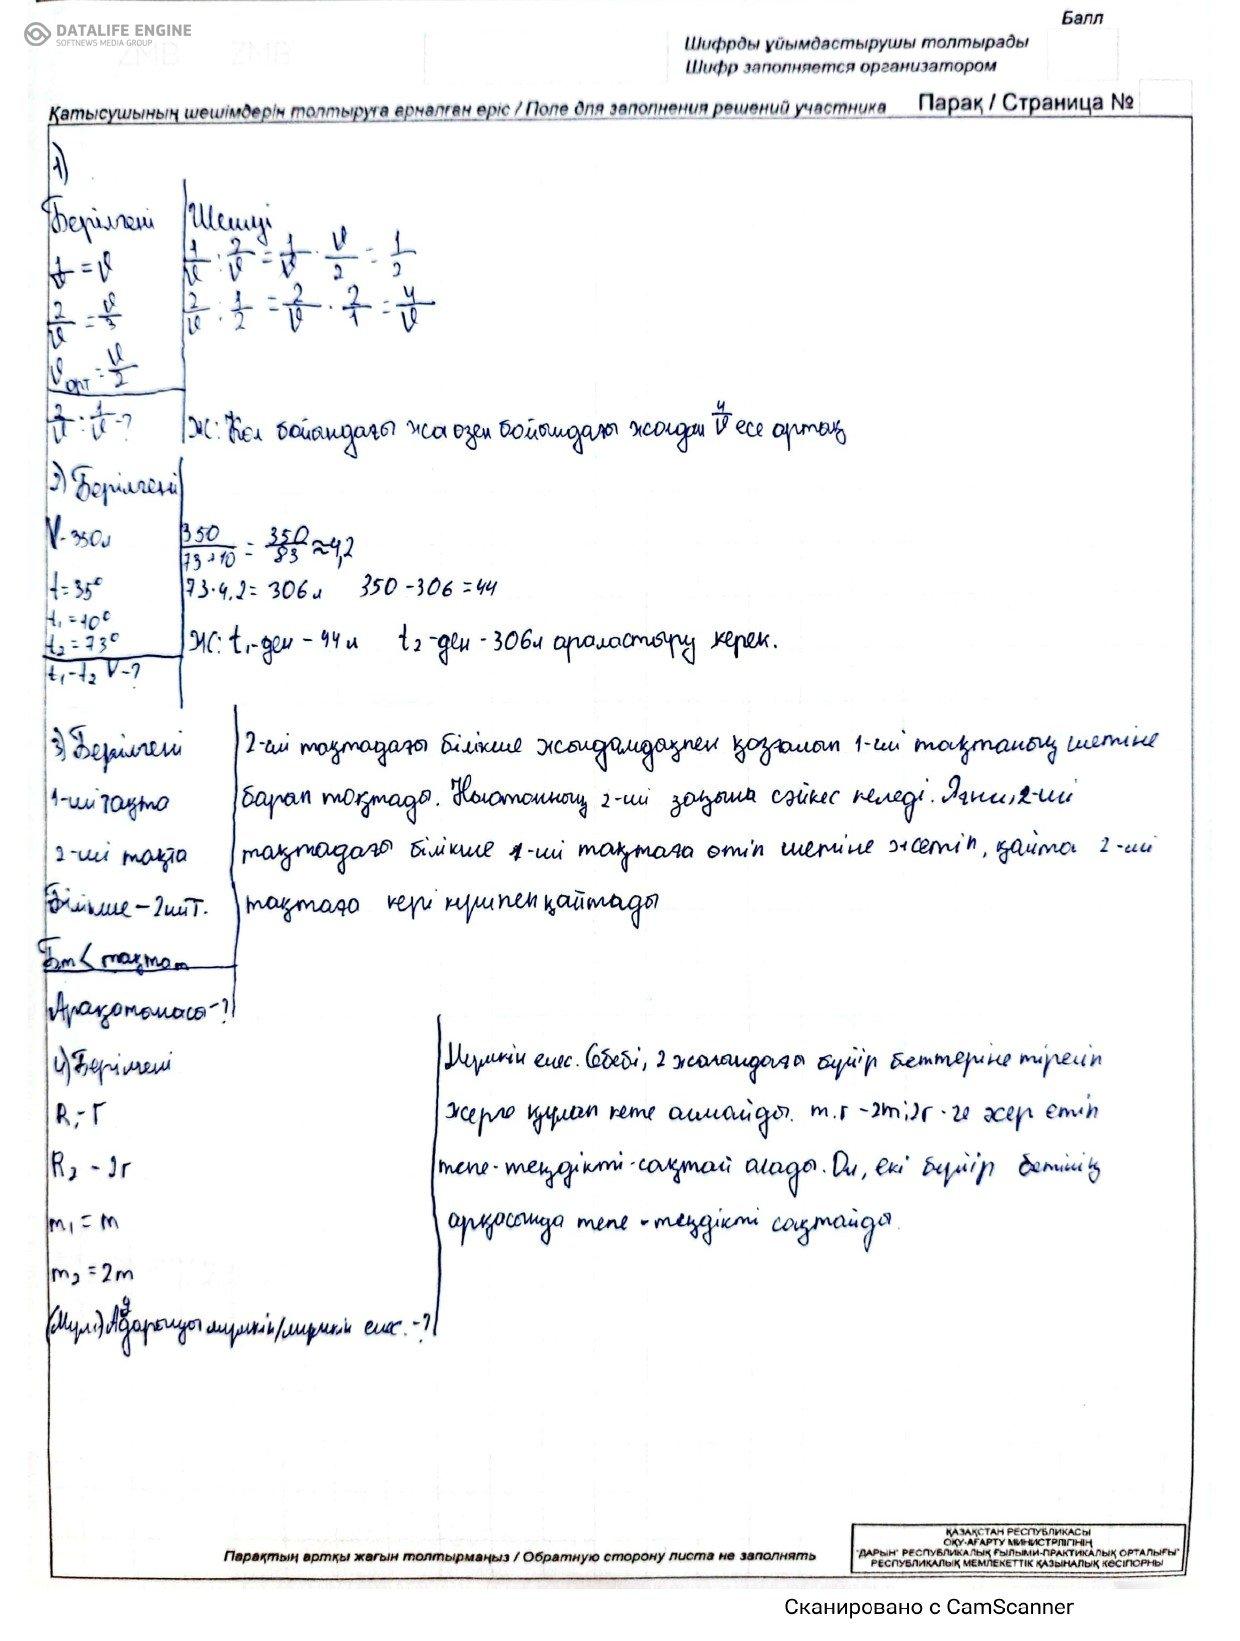 DATALIFE ENGINE
SOFTNEWS MEDIA GROUP
Балл
Шифрды ұйымдастырушы толтырады
Шифр заполняется организатором
Қатысушының шешімдерін толтыруға арналған өріс / Поле для заполнения решений участника
Парақ / Страница №
1)
Берілгені
1/v = v
2/v = v/3
v орт = v/2
2/v : 1/v - ?
Шешуі
1/v : 2/v = 1/v · v/2 = 1/2
2/v : 1/2 = 2/v · 2/1 = 4/v
Ж: Көл бойындағы жол өзен бойындағы жолдан 4/v есе артық
2) Берілгені
V - 350л
t = 35°
t₁ = 10°
t₂ = 73°
t₁ - t₂ V - ?
350/73+10 = 350/83 ≈ 4,2
73·4,2 = 306л 350 - 306 = 44
Ж: t₁-ден - 44л t₂-ден - 306л араластыру керек.
3) Берілгені
1-ші тақта
2-ші тақта
Білікше - 2шіт.
Бm < тақта m
Арақатынасы - ?
2-ші тақтадағы білікше жылдамдықпен қозғалып 1-ші тақтаның шетіне
барып тоқтады. Ньютонның 2-ші заңына сәйкес келеді. Яғни, 2-ші
тақтадағы білікше 1-ші тақтаға өтіп шетіне жетіп, қайта 2-ші
тақтаға кері күшпен қайтады
4) Берілгені
R₁ - r
R₂ - 2r
m₁ = m
m₂ = 2m
мүмкін/мүмкін емес. - ?
Мүмкін емес. Себебі, 2 жағындағы бүйір беттеріне тіреліп
жерге құлап кете алмайды. m.r - 2m;2r - ге жер етіп
тепе-теңдікті сақтай алады. Ол, екі бүйір бетінің
арқасында тепе-теңдікті сақтайды.
Парақтың артқы жағын толтырмаңыз / Обратную сторону листа не заполнять
ҚАЗАҚСТАН РЕСПУБЛИКАСЫ
ОҚУ-АҒАРТУ МИНИСТРЛІГІНІҢ
"ДАРЫН" РЕСПУБЛИКАЛЫҚ ҒЫЛЫМИ-ПРАКТИКАЛЫҚ ОРТАЛЫҒЫ"
РЕСПУБЛИКАЛЫҚ МЕМЛЕКЕТТІК ҚАЗЫНАЛЫҚ КӘСІПОРНЫ
Сканировано с CamScanner